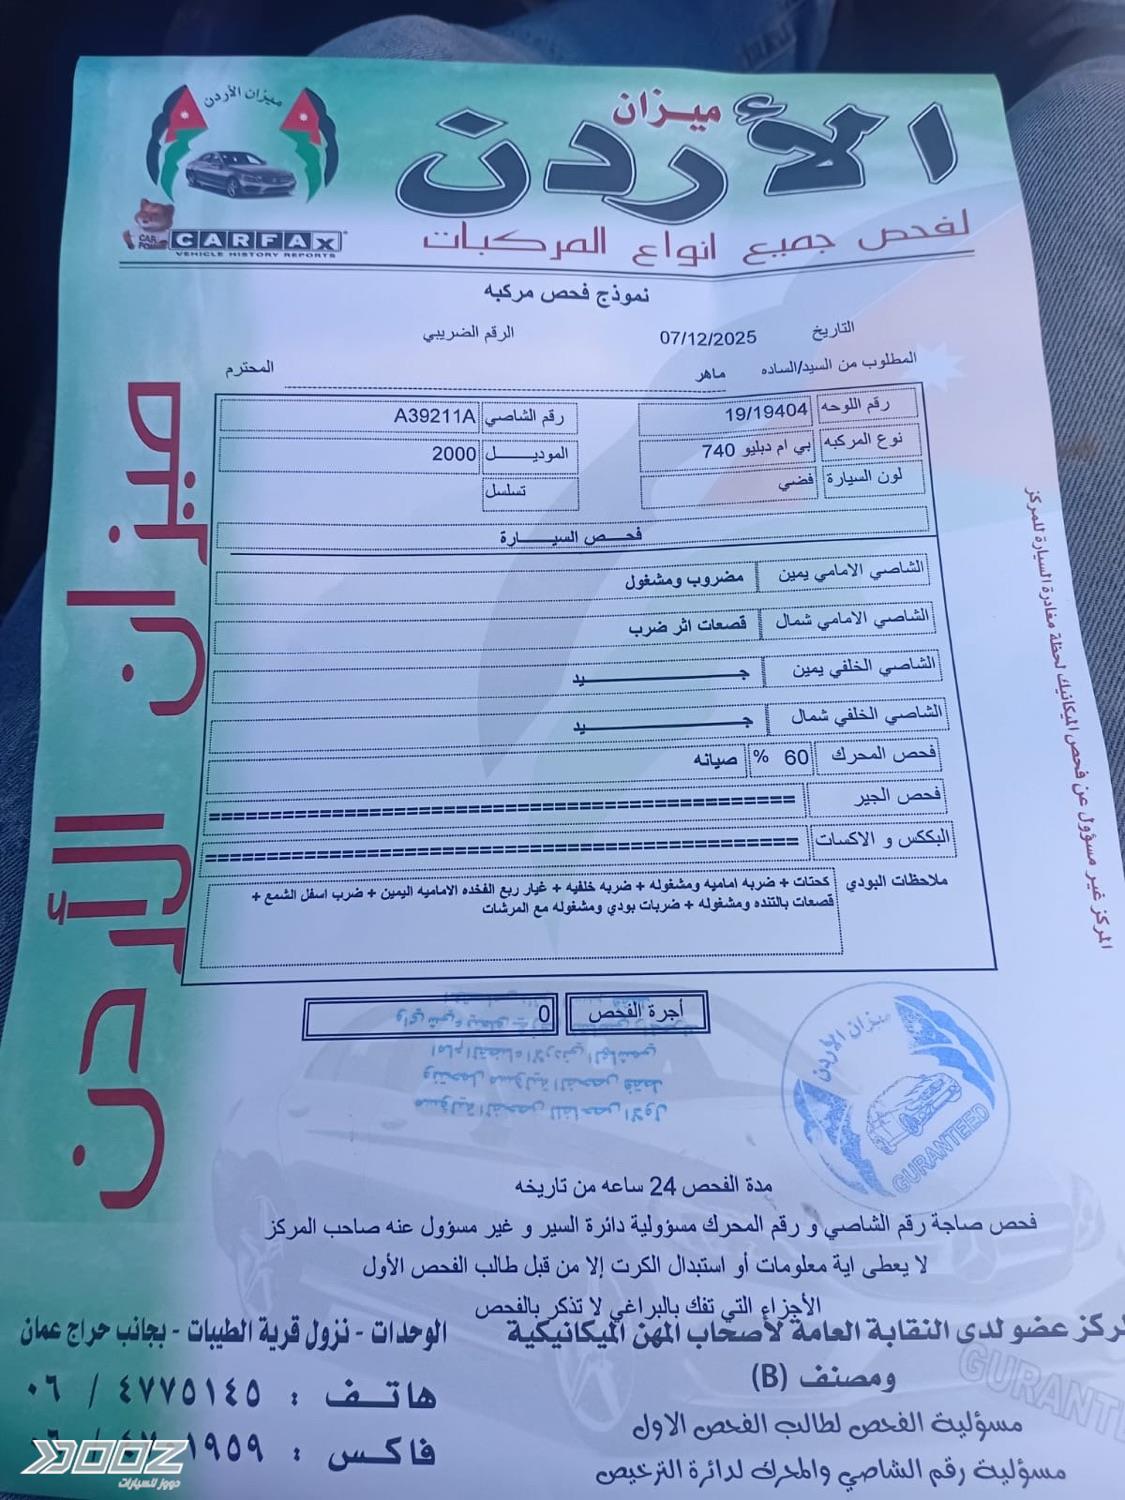 ميزان الأردن
ميزان
الأردن
CAR FOX
CARFAX
VEHICLE HISTORY REPORTS
لفحص جميع انواع المركبات
نموذج فحص مركبه
التاريخ 07/12/2025 الرقم الضريبي
المطلوب من السيد/الساده ماهر المحترم
رقم اللوحه 19/19404 رقم الشاصي A39211A
نوع المركبه بي ام دبليو 740 الموديـــــل 2000
لون السيارة فضي تسلسل
فحـــص السيـــــارة
الشاصي الامامي يمين مضروب ومشغول
الشاصي الامامي شمال قصعات اثر ضرب
الشاصي الخلفي يمين جـــــــــــيد
الشاصي الخلفي شمال جـــــــــــيد
فحص المحرك 60 % صيانه
فحص الجير ================================================
البككس و الاكسات ================================================
ملاحظات البودي كحتات + ضربه اماميه ومشغوله + ضربه خلفيه + غيار ربع الفخده الاماميه اليمين + ضرب اسفل الشمع +
قصعات بالتنده ومشغوله + ضربات بودي ومشغوله مع المرشات
أجرة الفحص 0
ميزان الأردن
GURANTEED
مدة الفحص 24 ساعه من تاريخه
فحص صاجة رقم الشاصي و رقم المحرك مسؤولية دائرة السير و غير مسؤول عنه صاحب المركز
لا يعطى اية معلومات أو استبدال الكرت إلا من قبل طالب الفحص الأول
الأجزاء التي تفك بالبراغي لا تذكر بالفحص
عضو لدى النقابة العامة لأصحاب المهن الميكانيكية
ومصنف (B)
مسؤولية الفحص لطالب الفحص الاول
مسؤولية رقم الشاصي والمحرك لدائرة الترخيص
الوحدات - نزول قرية الطيبات - بجانب حراج عمان
هاتف : ٤٧٧٥١٤٥ / ٠٦
فاكس :
ميزان الأردن
المركز غير مسؤول عن فحص الميكانيك لحظة مغادرة السيارة للمركز
DOOZ
دووز للسيارات